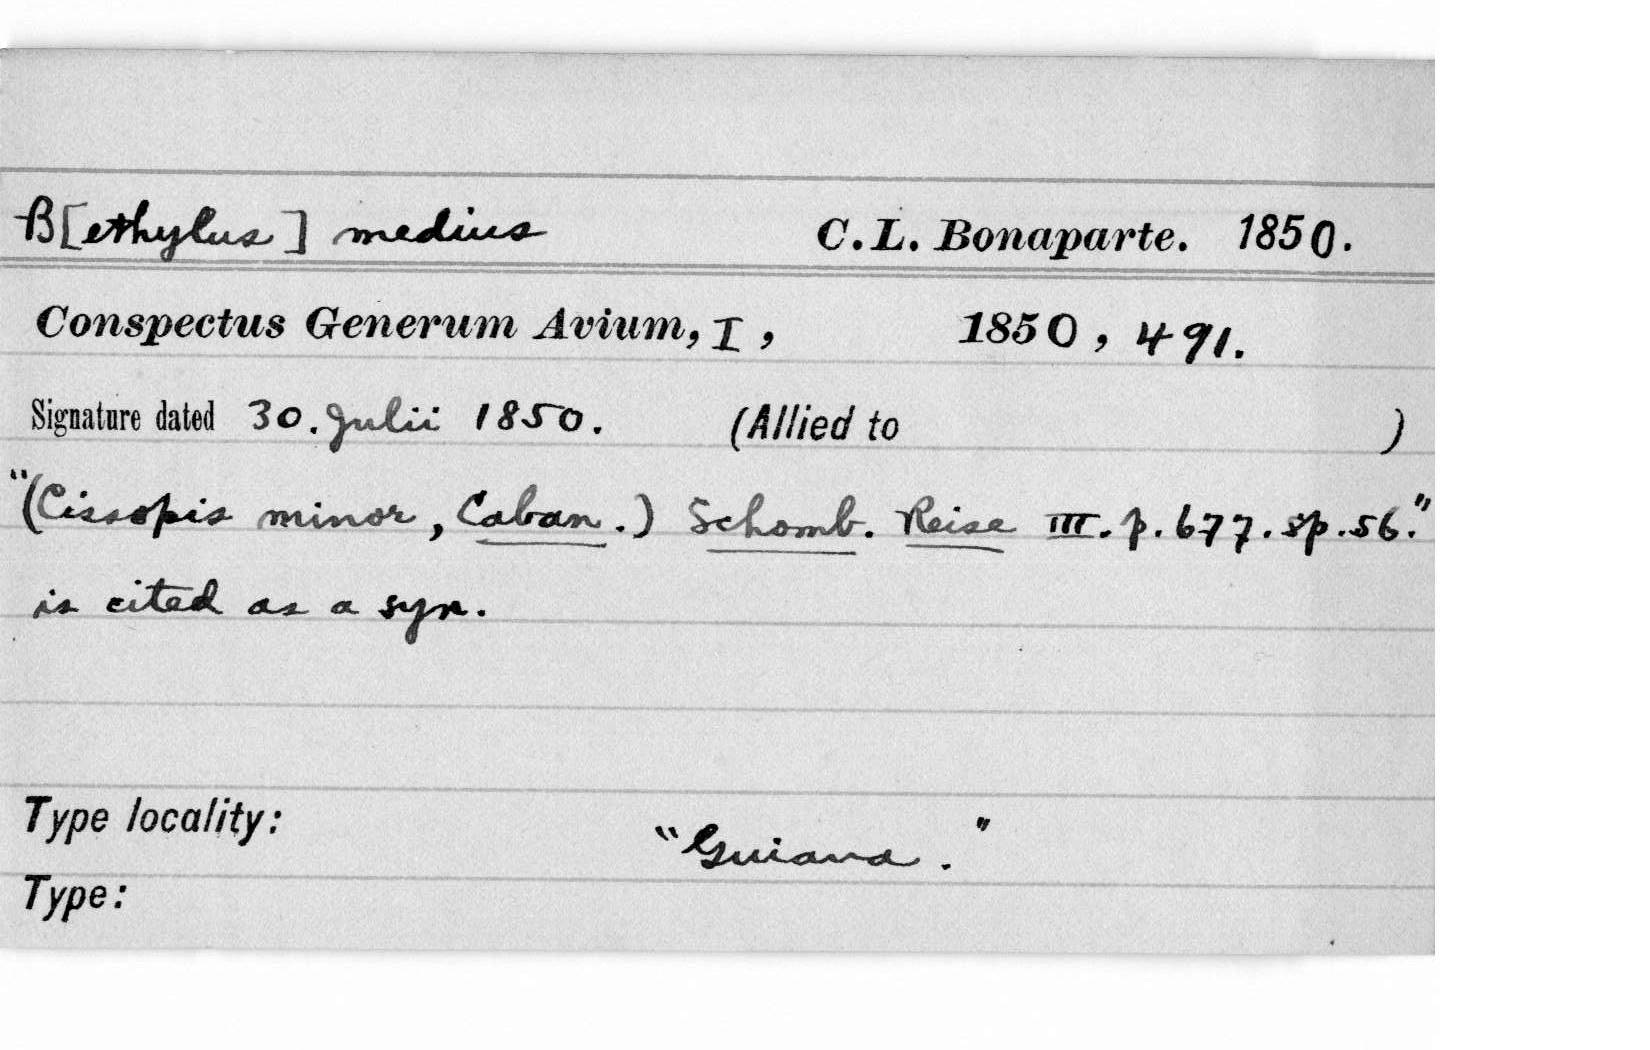 B[ethylus] medius C. L. Bonaparte. 1850.
Conspectus Generum Avium, I, 1850, 491.
Signature dated 30. Julii 1850. (Allied to )
"(Cissopis minor, Caban.) Schomb. Reise III. p. 677. sp. 56."
is cited as a syn.
Type locality: "Guiana."
Type: